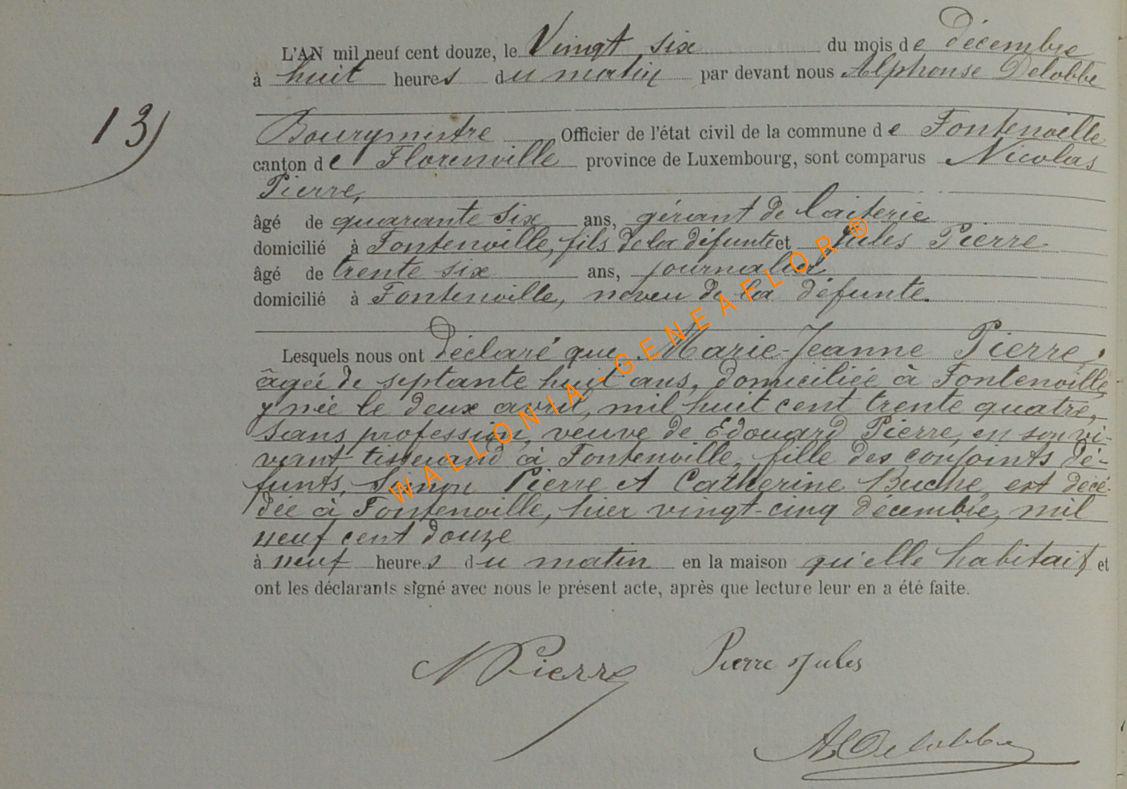 L'AN mil neuf cent douze, le Vingt six du mois de décembre
à huit heures du matin par devant nous Alphonse Delobbe
13)
Bourgmestre Officier de l'état civil de la commune de Fontenoille
canton de Florenville province de Luxembourg, sont comparus Nicolas
Pierre,
âgé de quarante six ans, gérant de laiterie
domicilié à Fontenoille, fils de la défunte et Jules Pierre
âgé de trente six ans, journalier
domicilié à Fontenoille, neveu de la défunte.
Lesquels nous ont déclaré que Marie-Jeanne Pierre,
âgée de septante huit ans, domiciliée à Fontenoille,
y née le deux avril, mil huit cent trente quatre,
sans profession, veuve de Edouard Pierre, en son vi-
vant tisserand à Fontenoille, fille des conjoints dé-
funts, Simon Pierre et Catherine Buché, est décé-
dée à Fontenoille, hier vingt-cinq décembre, mil
neuf cent douze
à neuf heures du matin en la maison qu'elle habitait et
ont les déclarants signé avec nous le présent acte, après que lecture leur en a été faite.
N Pierre
Pierre Jules
A Delobbe
WALLONIA-GENEAFLOR®